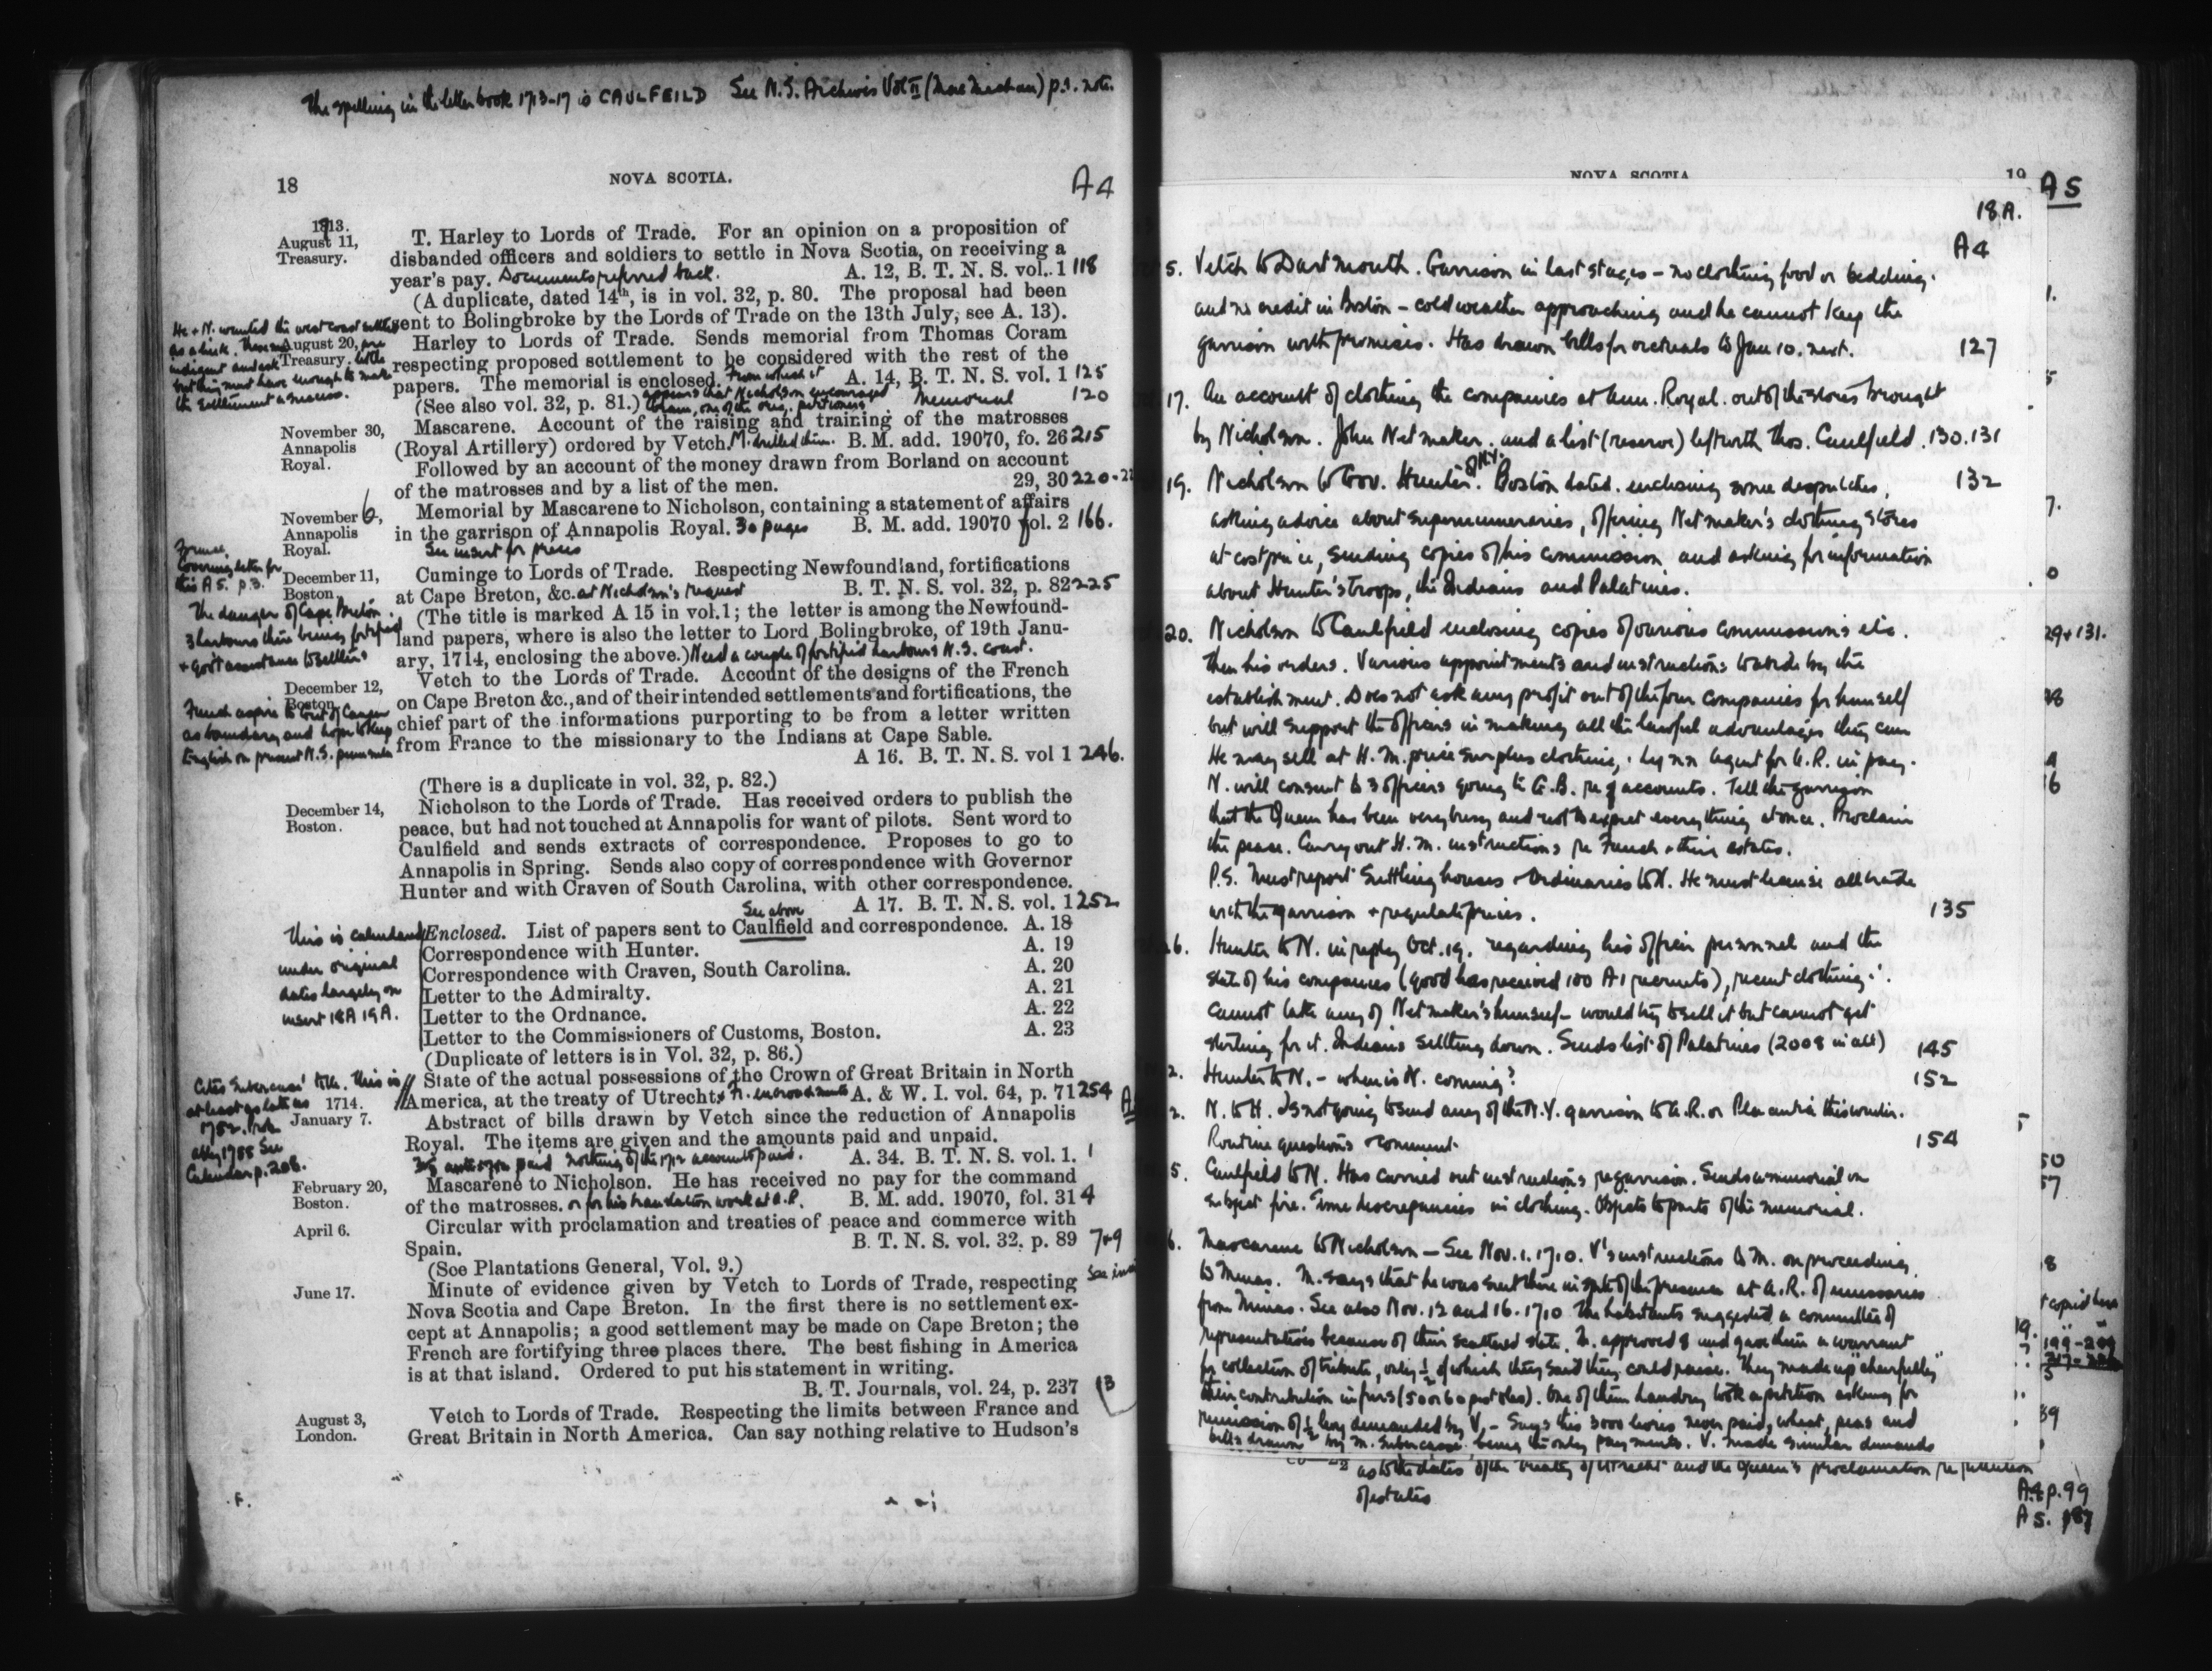 The spelling in the letter book 1713-17 is CAULFEILD See N.S. Archives Vol II (MacMechan) p.1. note.
18
NOVA SCOTIA.
A4
1713.
August 11,
Treasury.
T. Harley to Lords of Trade. For an opinion on a proposition of
disbanded officers and soldiers to settle in Nova Scotia, on receiving a
year's pay. Documents referred back. A. 12, B. T. N. S. vol. 1 118
(A duplicate, dated 14th, is in vol. 32, p. 80. The proposal had been
sent to Bolingbroke by the Lords of Trade on the 13th July, see A. 13).
He + N. wanted the west coast settled
August 20,
Treasury.
indigent and ask
but they must have enough to make
the settlement a success.
Harley to Lords of Trade. Sends memorial from Thomas Coram
respecting proposed settlement to be considered with the rest of the
papers. The memorial is enclosed. From which it A. 14, B. T. N. S. vol. 1 125
appears that Nicholson encouraged
(See also vol. 32, p. 81.) Coram, one of the orig. petitioners Memorial 120
November 30,
Annapolis
Royal.
Mascarene. Account of the raising and training of the matrosses
(Royal Artillery) ordered by Vetch. M. drilled them. B. M. add. 19070, fo. 26 215
Followed by an account of the money drawn from Borland on account
of the matrosses and by a list of the men. 29, 30 220-22
November 6,
Annapolis
Royal.
Memorial by Mascarene to Nicholson, containing a statement of affairs
in the garrison of Annapolis Royal. 30 pages B. M. add. 19070 fol. 2 166.
See insert for precis
Covering letter for
this A5. p.3.
December 11,
Boston.
Cuminge to Lords of Trade. Respecting Newfoundland, fortifications
at Cape Breton, &c. at Nicholson's request B. T. N. S. vol. 32, p. 82 225
The danger of Cape Breton.
3 harbours there being fortified
+ Gov't assistance to settlers
(The title is marked A 15 in vol.1; the letter is among the Newfound-
land papers, where is also the letter to Lord Bolingbroke, of 19th Janu-
ary, 1714, enclosing the above.) Need a couple of fortified harbours N.S. coast.
December 12,
Boston.
French aspire to Gut of Canceau
as boundary and hope to keep
English on present N.S. peninsula
Vetch to the Lords of Trade. Account of the designs of the French
on Cape Breton &c., and of their intended settlements and fortifications, the
chief part of the informations purporting to be from a letter written
from France to the missionary to the Indians at Cape Sable.
A 16. B. T. N. S. vol 1 246.
(There is a duplicate in vol. 32, p. 82.)
December 14,
Boston.
Nicholson to the Lords of Trade. Has received orders to publish the
peace, but had not touched at Annapolis for want of pilots. Sent word to
Caulfield and sends extracts of correspondence. Proposes to go to
Annapolis in Spring. Sends also copy of correspondence with Governor
Hunter and with Craven of South Carolina, with other correspondence.
See above A 17. B. T. N. S. vol. 1 252
This is calendared
under original
dates largely on
insert 18A 19A.
Enclosed. List of papers sent to Caulfield and correspondence. A. 18
Correspondence with Hunter. A. 19
Correspondence with Craven, South Carolina. A. 20
Letter to the Admiralty. A. 21
Letter to the Ordnance. A. 22
Letter to the Commissioners of Customs, Boston. A. 23
(Duplicate of letters is in Vol. 32, p. 86.)
Cites Subercase's title. This is
at least as late as
1752. Prob-
ably 1755 See
Calendar p. 206.
State of the actual possessions of the Crown of Great Britain in North
America, at the treaty of Utrecht. + Fr. encroachments A. & W. I. vol. 64, p. 71 254
1714.
January 7.
Abstract of bills drawn by Vetch since the reduction of Annapolis
Royal. The items are given and the amounts paid and unpaid.
nothing of the 1712 accounts paid. A. 34. B. T. N. S. vol. 1. 1
February 20,
Boston.
Mascarene to Nicholson. He has received no pay for the command
of the matrosses. or for his translation work at A.R. B. M. add. 19070, fol. 31 4
April 6.
Circular with proclamation and treaties of peace and commerce with
Spain. B. T. N. S. vol. 32, p. 89 7+9
(See Plantations General, Vol. 9.)
June 17.
Minute of evidence given by Vetch to Lords of Trade, respecting
Nova Scotia and Cape Breton. In the first there is no settlement ex-
cept at Annapolis; a good settlement may be made on Cape Breton; the
French are fortifying three places there. The best fishing in America
is at that island. Ordered to put his statement in writing.
B. T. Journals, vol. 24, p. 237 13
August 3,
London.
Vetch to Lords of Trade. Respecting the limits between France and
Great Britain in North America. Can say nothing relative to Hudson's
NOVA SCOTIA
19
A5
18A.
A4
5. Vetch to Dartmouth. Garrison in last stages - no clothing food or bedding.
and no credit in Boston - cold weather approaching and he cannot keep the
garrison with promises. Has drawn bills for victuals to Jan 10. next. 127
17. An account of clothing the companies at Ann. Royal. out of the stores brought
by Nicholson. John Netmaker. and a list (reserve) left with Thos. Caulfield. 130.131
19. Nicholson to Gov. Hunter of N.Y. Boston dated. enclosing some despatches, 132
asking advice about supernumeraries, offering Netmaker's clothing stores
at cost price, sending copies of his commission and asking for information
about Hunter's troops, the Indians and Palatines.
20. Nicholson to Caulfield enclosing copies of various commissions etc.
then his orders. Various appointments and instructions to abide by the
establishment. Does not ask any profit out of the four companies for himself
but will support the officers in making all the lawful advantages they can
He may sell at H.M. price surplus clothing, agent for A.R. in pay.
N. will consent to 3 officers going to G.B. re accounts. Tell the garrison
that the Queen has been very busy and not to expect everything at once. Proclaim
the peace. Carry out H.M. instructions re French + their estates.
P.S. Must report suttling houses + Ordinaries to N. He must license all trade
with the garrison + regulate prices. 135
26. Hunter to N. in reply Oct. 19. regarding his officer personnel and the
state of his companies (good has received 100 A1 recruits), recent clothing.
cannot take any of Netmaker's himself - would try to sell it but cannot get
sterling for it. Indians settling down. Sends list of Palatines (2008 in all) 145
2. Hunter to N. - when is N. coming? 152
2. N. to H. Is not going to send any of the N.Y. garrison to A.R. or Placentia this winter.
Routine questions + comment. 154
5. Caulfield to N. Has carried out instructions re garrison. Sends memorial on
subject fire. Some discrepancies in clothing. Objects to parts of the memorial.
6. Mascarene to Nicholson - See Nov. 1. 1710. V's instructions to M. on proceeding
to Minas. M. says that he was sent there in spite of the presence at A.R. of emissaries
from Minas. See also Nov. 12 and 16. 1710 The habitants suggested a committee of
representatives because of their scattered state. M. approved 8 and gave them a warrant
for collection of tribute, only ½ of which they said they could raise. They made up "cheerfully"
their contribution in furs (50 or 60 pistoles). One of them Landry took a petition asking for
remission of ½ levy demanded by V. - Says this 3000 livres never paid, wheat, peas and
bills drawn by M. Subercase being the only payments. V. made similar demands
as to the dates of the treaty of Utrecht and the Queen's proclamation re
of estates
29+131.
199-209
A4 p.99
A5. 187